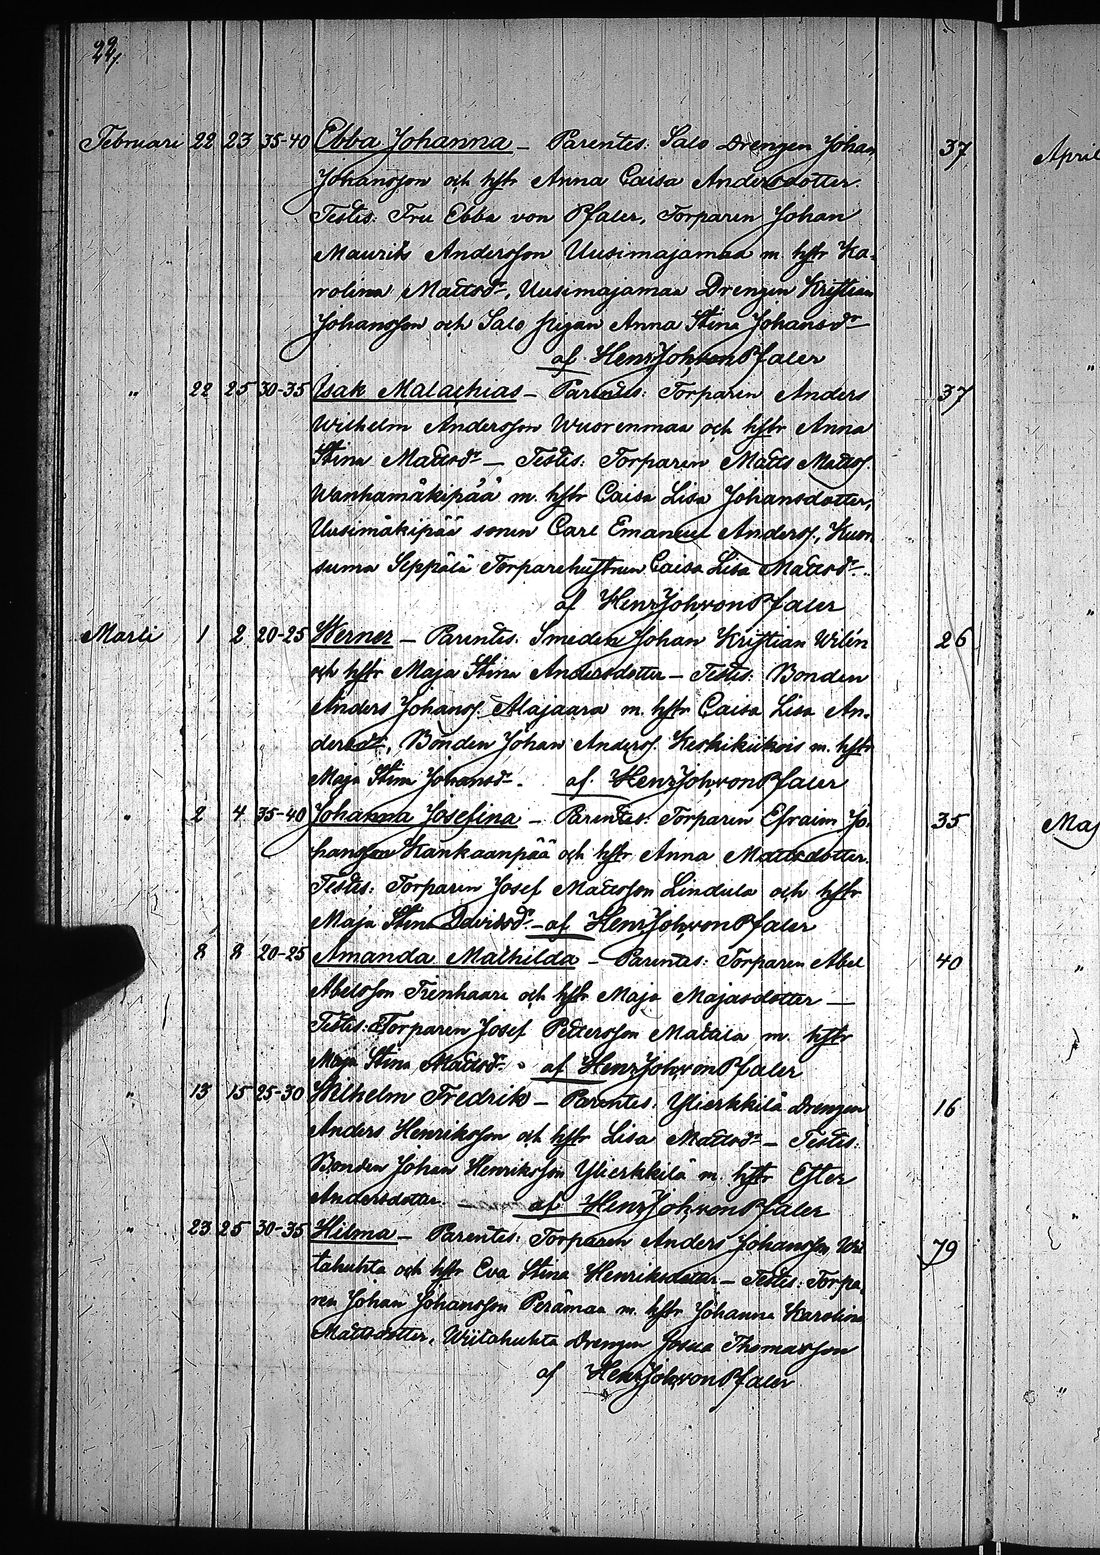 22,
Februari 22 23 35-40 Ebba Johanna – Parentes: Salo Drengen Johan 37
Johansson och hstr Anna Caisa Andersdotter.
Testes: Fru Ebba von Pfaler, Torparen Johan
Maurits Andersson Uusimajamaa m. hstr Ka-
rolina Mattsdr, Uusimajamaa Drengen Kristian
Johansson och Salo pigan Anna Stina Johansdr
af HenrJohvonPfaler
" 22 25 30-35 Isak Malachias – Parentes: Torparen Anders 37
Wilhelm Andersson Wuorenmaa och hstr Anna
Stina Mattsdr – Testes: Torparen Matts Mattss.
Wanhamäkipää m. hstr Caisa Lisa Johansdotter,
Uusimäkipää sonen Carl Emanuel Anderss., Kuor
suma Seppälä Torparehustrun Caisa Lisa Mattsdr.
af HenrJohvonPfaler
Marti 1 2 20-25 Werner – Parentes: Smeden Johan Kristian Wilén 26
och hstr Maja Stina Andersdotter – Testes: Bonden
Anders Johanss. Alajaara m. hstr Caisa Lisa An-
dersdr, Bonden Johan Anderss. Keskikiikois m. hstr
Maja Stina Johansdr. af HenrJohvonPfaler
" 2 4 35-40 Johanna Josefina – Parentes: Torparen Efraim Jo- 35
hansson Kankaanpää och hstr Anna Mattsdotter.
Testes: Torparen Josef Mattsson Lindula och hstr
Maja Stina Davidsdr. – af HenrJohvonPfaler
8 8 20-25 Amanda Mathilda – Parentes: Torparen Abel 40
Abelsson Trenhaara och hstr Maja Majasdotter –
Testes: Torparen Josef Pettersson Mattila m. hstr
Maja Stina Mattsdr. af HenrJohvonPfaler
" 13 15 25-30 Wilhelm Fredrik – Parentes: Ylierkkilä Drengen 16
Anders Henriksson och hstr Lisa Mattsdr – Testes:
Bonden Johan Henriksson Ylierkkilä m. hstr Ester
Andersdotter. – af HenrJohvonPfaler
" 23 25 30-35 Hilma – Parentes: Torparen Anders Johansson Wii 79
tahuhta och hstr Eva Stina Henriksdotter – Testes: Torpa-
ren Johan Johansson Perämaa m. hstr Johanna Karolina
Mattsdotter, Wiitahuhta Drengen Josua Thomasson
af HenrJohvonPfaler
April
"
"
Maj
"
"
"